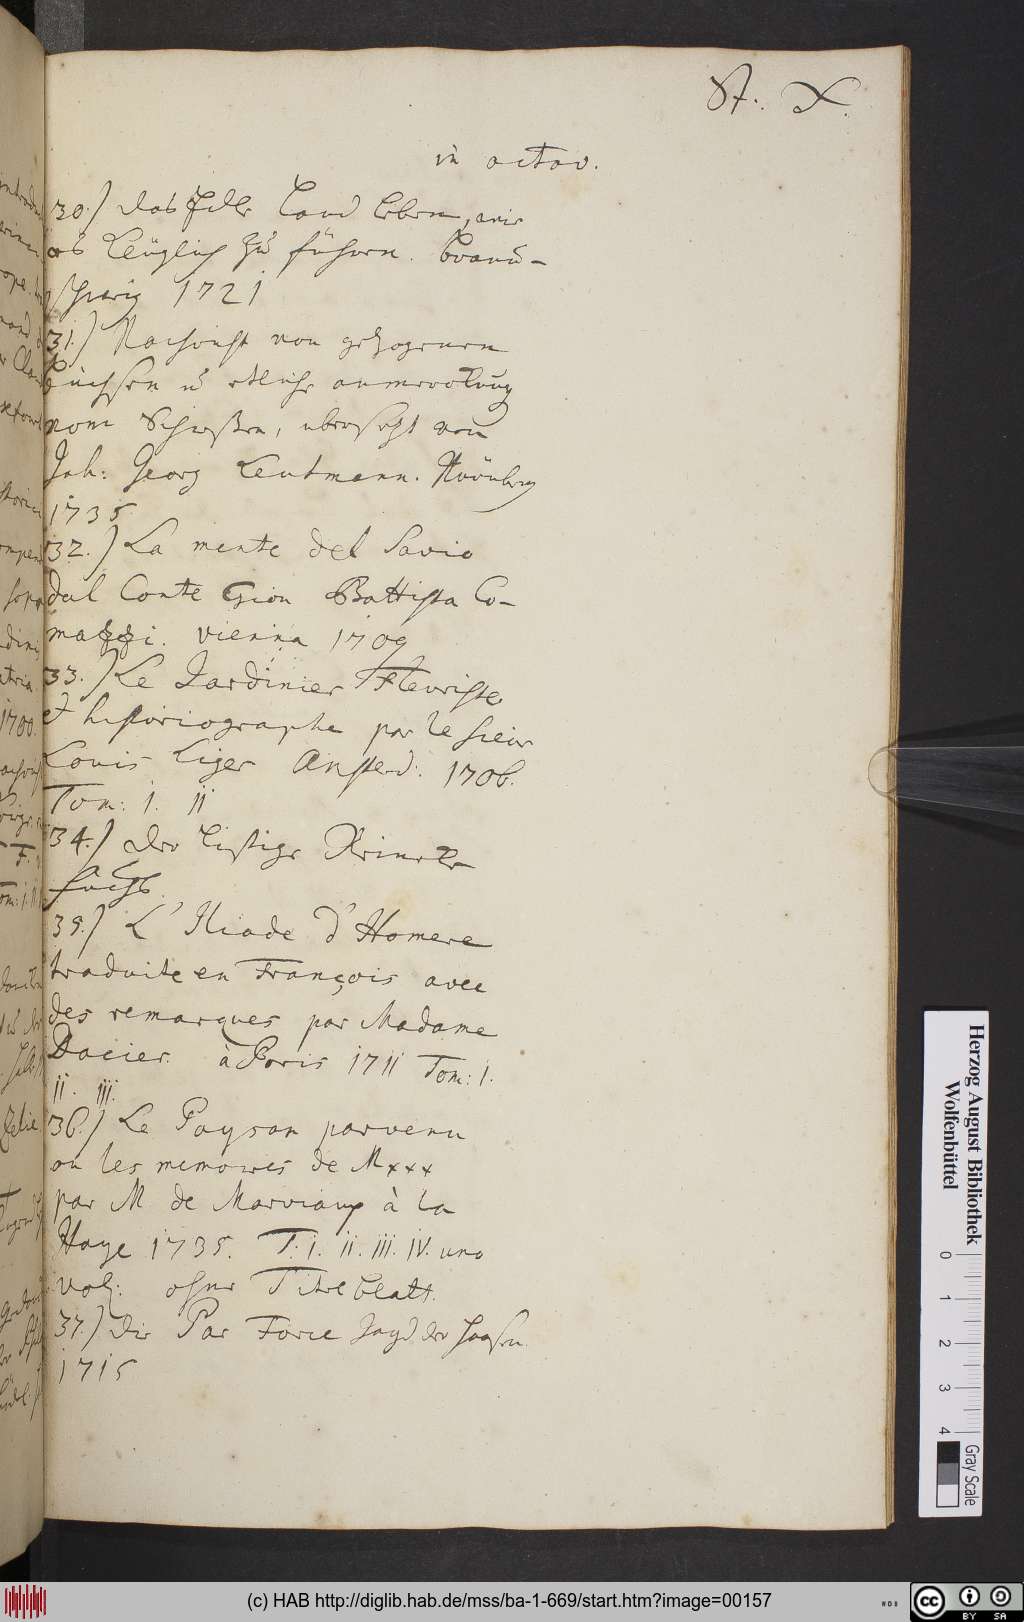 St. X.
in octav.
30.) das Edle Land leben, wie
es Leüglich zu führen. Braun-
schweig 1721
31.) Nachricht von gezogenen
büchsen u etliche anmerckung
vom Schießen, übersetzt von
Joh: Georg Leutmann. Nürnberg
1735
32.) La mente del Savio
dal Conte Gion Battista Co-
mazzi. vienna 1709
33.) Le Jardinier Fleuriste
et historiographe par le sieur
Louis Liger Amsterd: 1706.
Tom: I. II
34.) der listige Reineke
fuchs.
35.) L' Iliade d' Homere
traduite en François avec
des remarques par Madame
Dacier. à Paris 1711 Tom: I.
II. III.
36.) Le Paysan parvenu
ou les memoires de Mxxx
par M de Marivaux à la
Haye 1735. T: I. II. III. IV. uno
vol: ohne Titelblatt.
37.) die Par Force Jagd der Haasen.
1715
Herzog August Bibliothek
Wolfenbüttel
0 1 2 3 4
Gray Scale
(c) HAB http://diglib.hab.de/mss/ba-1-669/start.htm?image=00157
cc BY SA